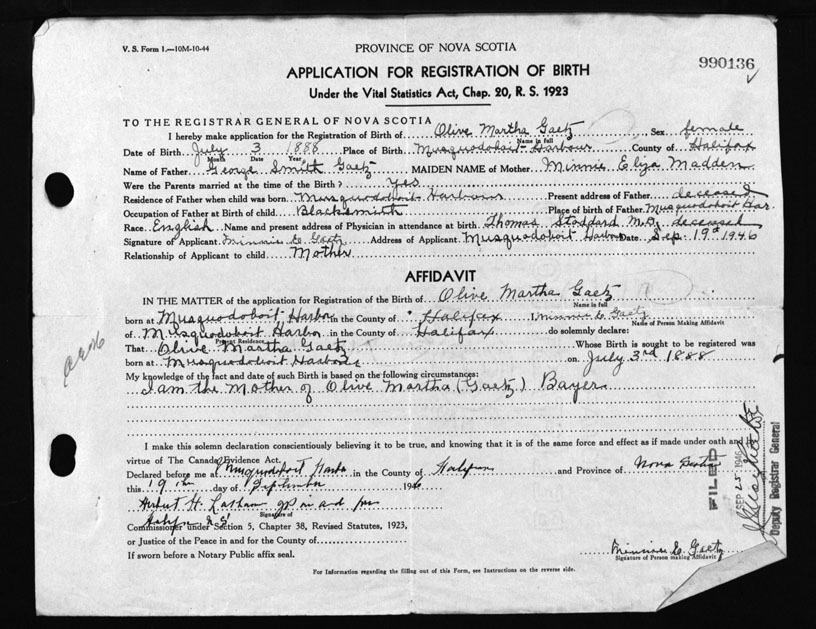 V. S. Form 1.—10M-10-44
PROVINCE OF NOVA SCOTIA
990136
APPLICATION FOR REGISTRATION OF BIRTH
Under the Vital Statistics Act, Chap. 20, R. S. 1923
TO THE REGISTRAR GENERAL OF NOVA SCOTIA
I hereby make application for the Registration of Birth of Olive Martha Gaetz Sex female
Name in full
Date of Birth July 3 1888 Place of Birth Musquodoboit Harbour County of Halifax
Month Date Year
Name of Father George Smith Gaetz MAIDEN NAME of Mother Minnie Eliza Madden
Were the Parents married at the time of the Birth? Yes
Residence of Father when child was born Musquodoboit Harbour Present address of Father deceased
Occupation of Father at Birth of child Blacksmith Place of birth of Father Musquodoboit Har.
Race English Name and present address of Physician in attendance at birth Thomas Stoddard M.D. deceased
Signature of Applicant Minnie E. Gaetz Address of Applicant Musquodoboit Harbour Date Sep. 19th 1946
Relationship of Applicant to child Mother
AFFIDAVIT
IN THE MATTER of the application for Registration of the Birth of Olive Martha Gaetz
Name in full
born at Musquodoboit Harbor in the County of Halifax I, Minnie E. Gaetz
Name of Person Making Affidavit
of Musquodoboit Harbor in the County of Halifax do solemnly declare:
Present Residence
That Olive Martha Gaetz Whose Birth is sought to be registered was
born at Musquodoboit Harbour on July 3rd 1888
My knowledge of the fact and date of such Birth is based on the following circumstances:
I am the Mother of Olive Martha (Gaetz) Bayer
I make this solemn declaration conscientiously believing it to be true, and knowing that it is of the same force and effect as if made under oath and
virtue of The Canada Evidence Act.
Declared before me at Musquodoboit Harbor in the County of Halifax and Province of Nova Scotia
this 19th day of September 1946
Signature of
Commissioner under Section 5, Chapter 38, Revised Statutes, 1923,
or Justice of the Peace in and for the County of
If sworn before a Notary Public affix seal.
Minnie E. Gaetz
Signature of Person making Affidavit
For Information regarding the filling out of this Form, see Instructions on the reverse side.
FILED
SEP 25 1946
Deputy Registrar General